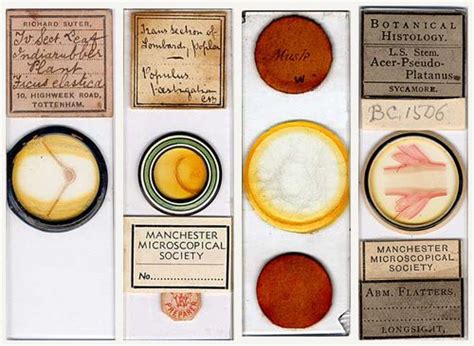 RICHARD SUTER,
Tv. Sect. Leaf
Indiarubber
Plant
Ficus elastica
10, HIGHWEEK ROAD,
TOTTENHAM.
Trans section of
Lombardy poplar
Populus
Fastigiata
MANCHESTER
MICROSCOPICAL
SOCIETY
No.
PREPARER
W
BOTANICAL
HISTOLOGY.
L.S. Stem.
Acer-Pseudo-
Platanus
SYCAMORE.
BC.1506
MANCHESTER
MICROSCOPICAL
SOCIETY.
ABM. FLATTERS,
LONGSIGHT,